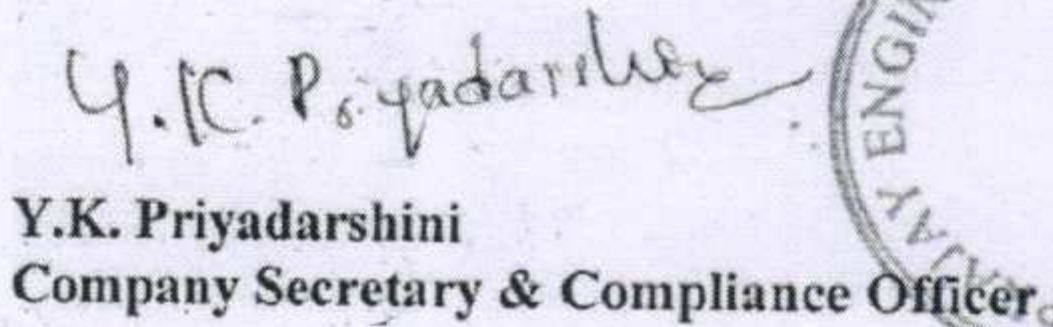 Y.K. Priyadarshini
Y.K. Priyadarshini
Company Secretary & Compliance Officer